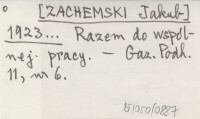 [ZACHEMSKI Jakub]
1923... Razem do wspól-
nej pracy. — Gaz. Podh.
11, nr 6.